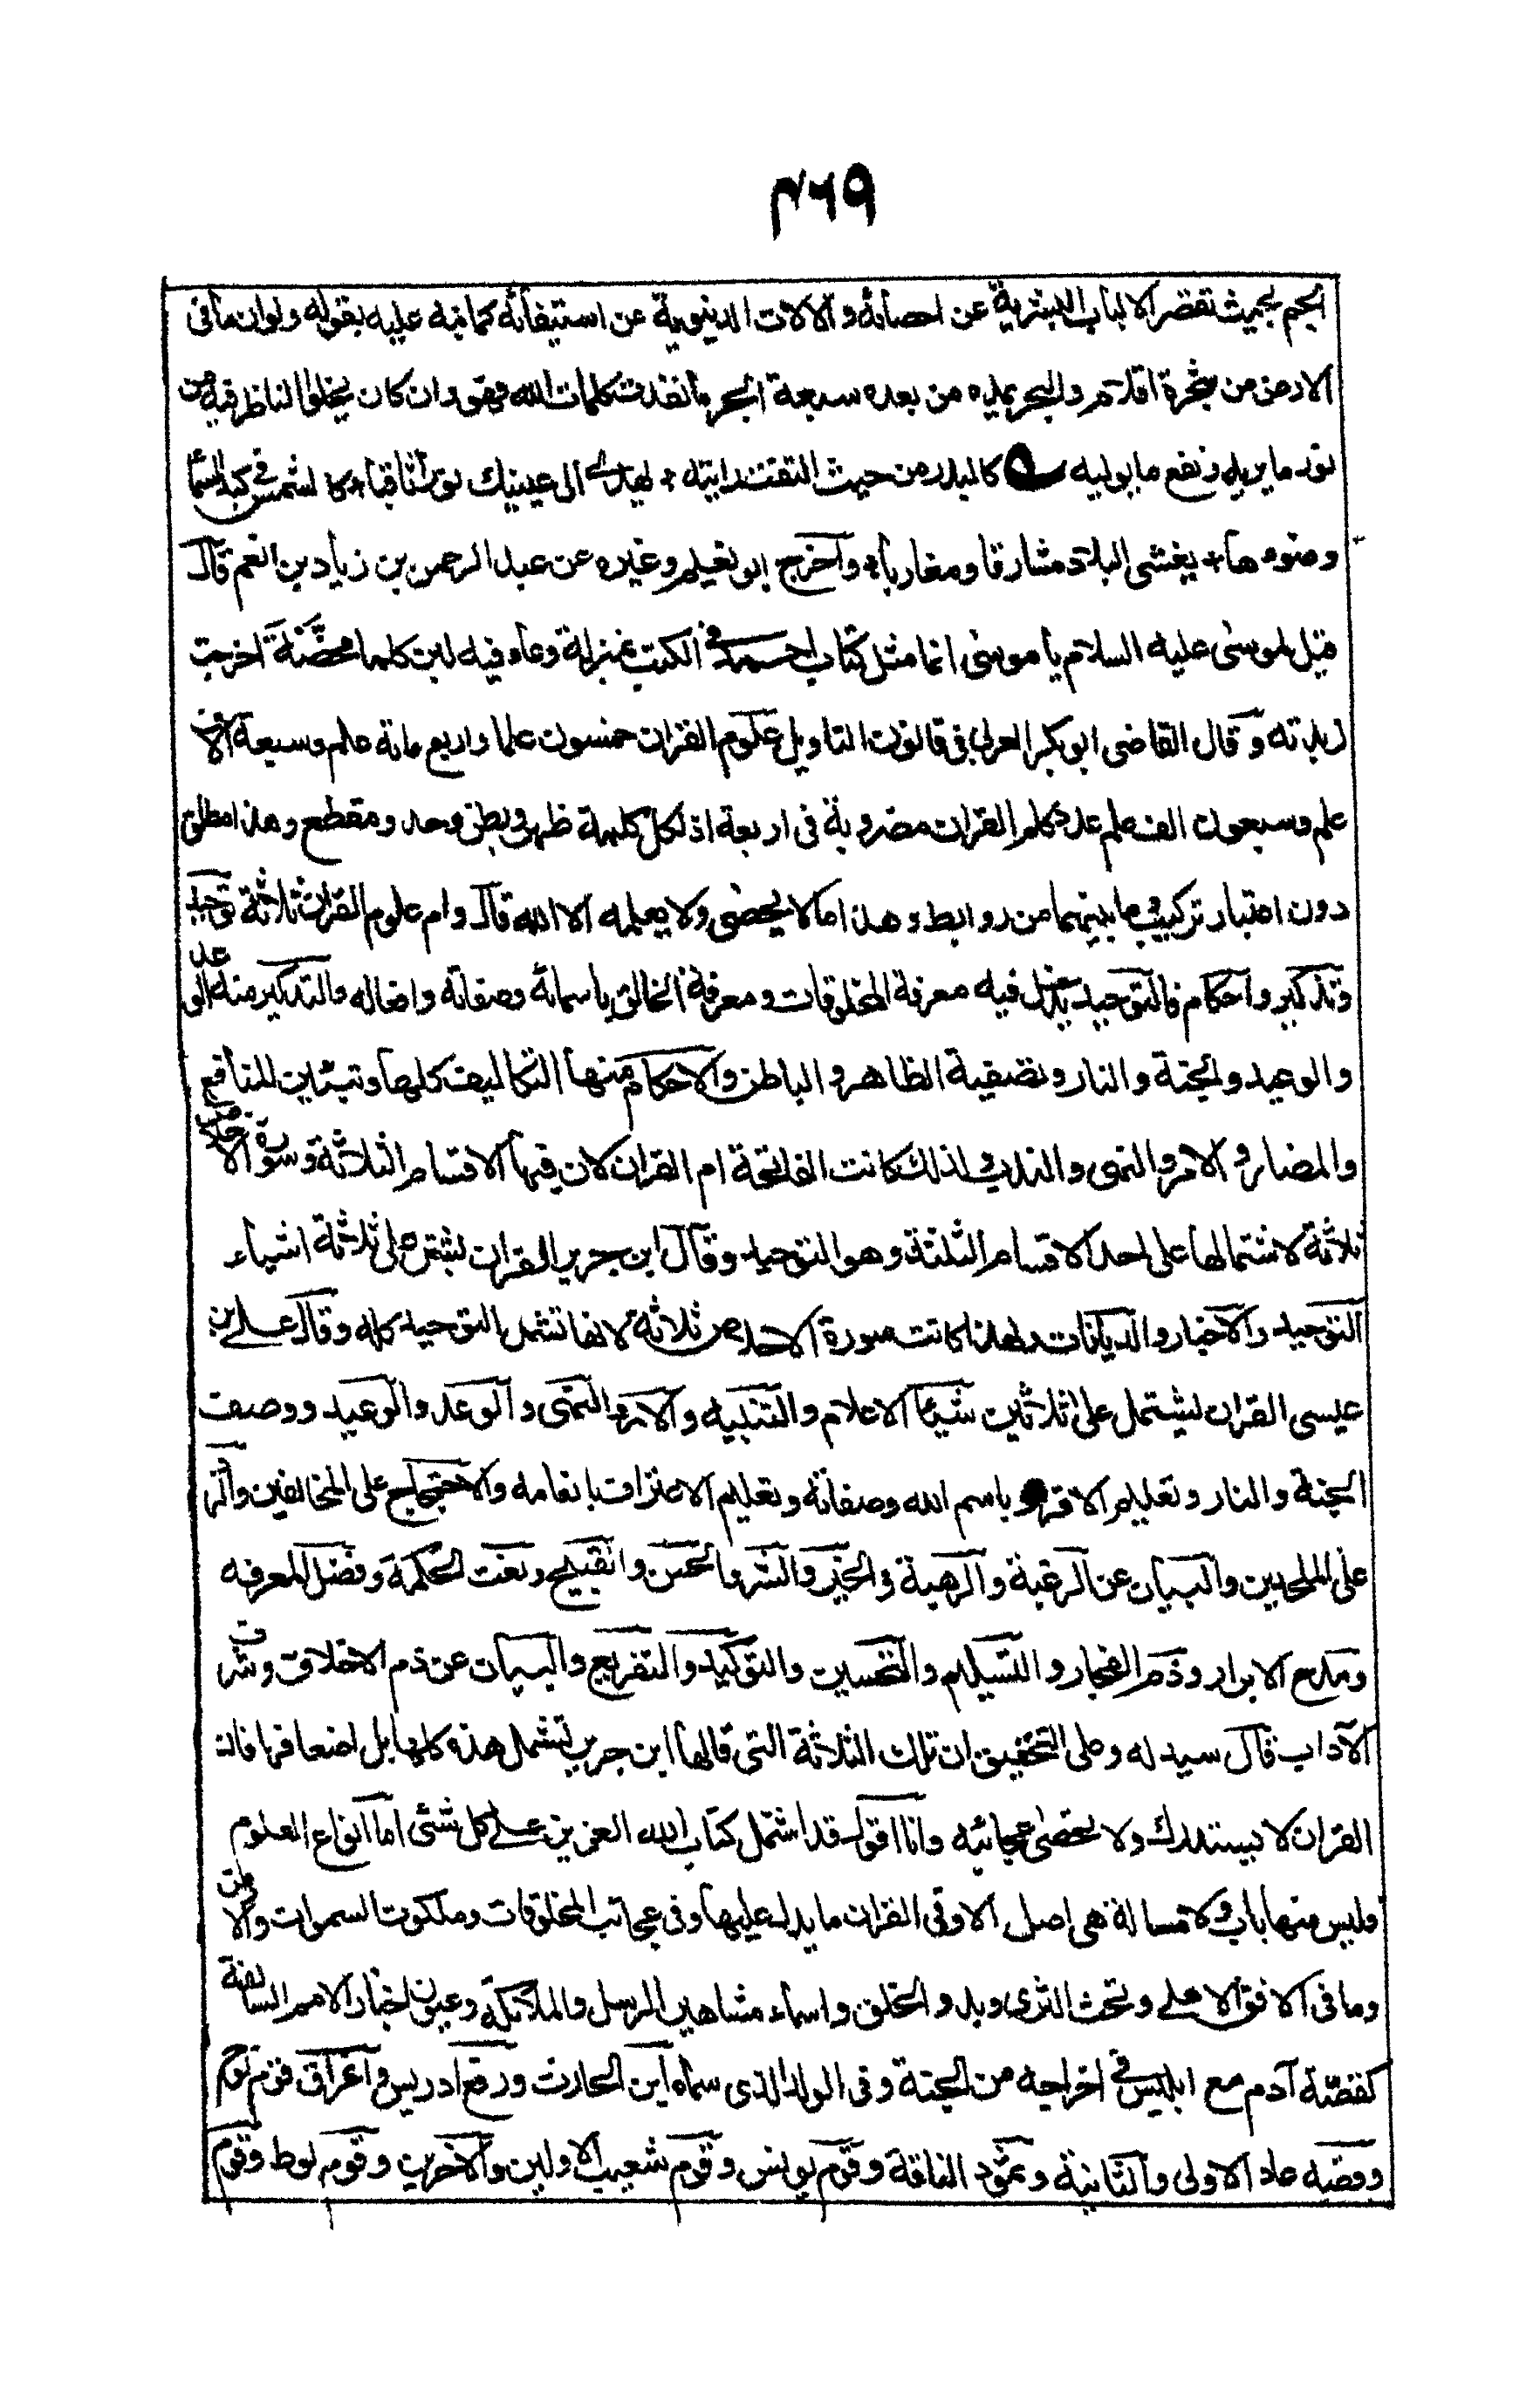 ٤٦٩
الجم بحيث تقصر الالباب البشرية عن احصائه والالات الدنيوية عن استيفائه كما نبه عليه بقوله ولو ان ما فى
الارض من شجرة اقلام والبحر يمده من بعده سبعة ابحر ما نفدت كلمات الله فهو وان كان لا يخلو الناظر فيه من
نور ما يريه ونفع ما يوليه كالبدر من حيث التفت رايته * يهدى الى عينيك نورا ثاقبا * كالشمس فى كبد السما
وضوءها * يغشى البلاد مشارقا ومغاربا * واخرج ابو نعيم وغيره عن عبد الرحمن بن زياد بن انعم قال
قيل لموسى عليه السلام يا موسى انما مثل كتاب احمد فى الكتب بمنزلة وعاء فيه لبن كلما مخضته اخرجت
زبدته وقال القاضى ابو بكر العربى فى قانون التاويل علوم القران خمسون علما واربع مائة علم وسبعة الاف
علم وسبعون الف علم عدد كلم القران مضروبة فى اربعة اذ لكل كلمة ظهر وبطن وحد ومقطع وهذا مطلق
دون اعتبار تركيب وما بينهما من روابط وهذا ما لا يحصى ولا يعلمه الا الله قال وام علوم القران ثلاثة توحيد
وتذكير واحكام فالتوحيد يدخل فيه معرفة المخلوقات ومعرفة الخالق باسمائه وصفاته وافعاله والتذكير منه الوعد
والوعيد والجنة والنار وتصفية الظاهر والباطن والاحكام منها التكاليف كلها وتبيين المنافع
والمضار والامر والنهى والندب ولذلك كانت الفاتحة ام القران لان فيها الاقسام الثلاثة وسورة الاخلاص
ثلاثة لاشتمالها على احد الاقسام الثلثة وهو التوحيد وقال ابن جرير القران يشتمل على ثلاثة اشياء
التوحيد والاخبار والديانات ولهذا كانت سورة الاخلاص ثلاثة لانها تشمل التوحيد كله وقال على بن
عيسى القران يشتمل على ثلاثين شيئا الاعلام والتنبيه والامر والنهى والوعد والوعيد ووصف
الجنة والنار وتعليم الاقرار باسم الله وصفاته وتعليم الاعتراف بانعامه والاحتجاج على المخالفين والرد
على الملحدين والبيان عن الرغبة والرهبة والخير والشر والحسن والقبيح ونعت الحكمة وفضل المعرفه
ومدح الابرار وذم الفجار والتسليم والتحسين والتوكيد والتقريع والبيان عن ذم الاخلاق وشرف
الآداب قال سيدله وعلى التحقيق ان تلك الثلاثة التى قالها ابن جرير تشمل هذه كلها بل اضعافها فان
القران لا يستدرك ولا تحصى عجائبه وانا اقول قد اشتمل كتاب الله العزيز على كل شئى اما انواع العلوم
فليس منها باب ولا مسالة هى اصل الا وفى القران ما يدل عليها وفى عجائب المخلوقات وملكوت السموات والارض
وما فى الافق الاعلى وتحت الثرى وبدو الخلق واسماء مشاهير الرسل والملائكة وعيون اخبار الامم السالفة
كقصة آدم مع ابليس فى اخراجه من الجنة وفى الولد الذى سماه ابن الحارث ورفع ادريس واغراق قوم نوح
وقصه عاد الاولى والثانية وثمود الناقة وقوم يونس وقوم شعيب الاولين والآخرين وقوم لوط وقوم